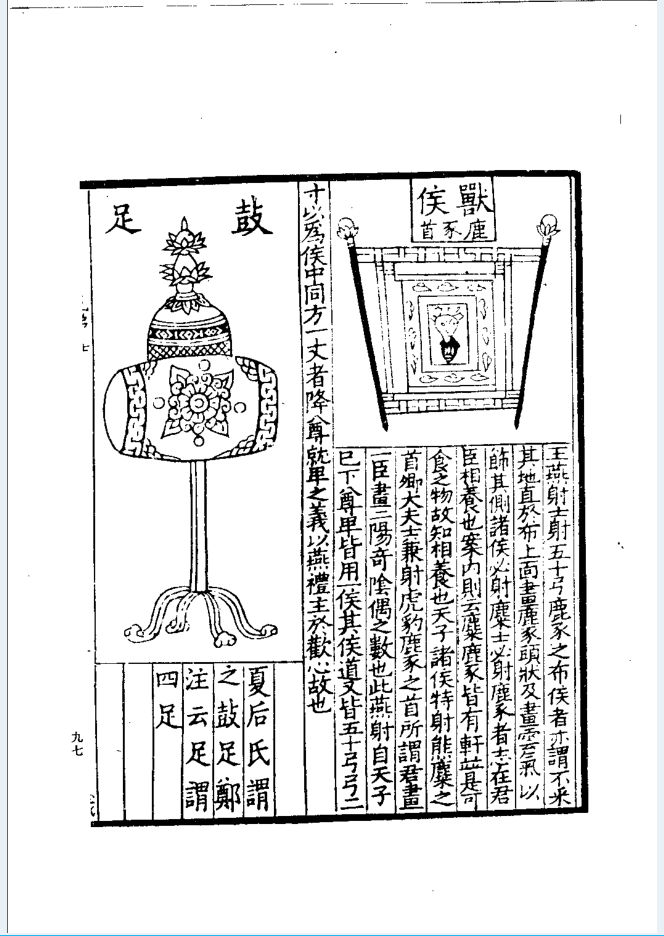 獸侯
鹿豕首
王燕射士射五十弓鹿豕之布侯者亦謂不采
其地直於布上面畫鹿豕頭狀及畫雲气以
飾其側諸侯必射麋士必射鹿豕者志在君
臣相養也案内則云麋鹿豕皆有軒並是可
食之物故知相養也天子諸侯特射熊麋之
首卿大夫士兼射虎豹鹿豕之首所謂君畫
一臣畫二陽奇陰偶之數也此燕射自天子
已下尊卑皆用一侯其侯道又皆五十弓弓二
寸以為侯中同方一丈者降尊就卑之義以燕禮主於歡心故也
鼓足
夏后氏謂
之鼓足鄭
注云足謂
四足
九七